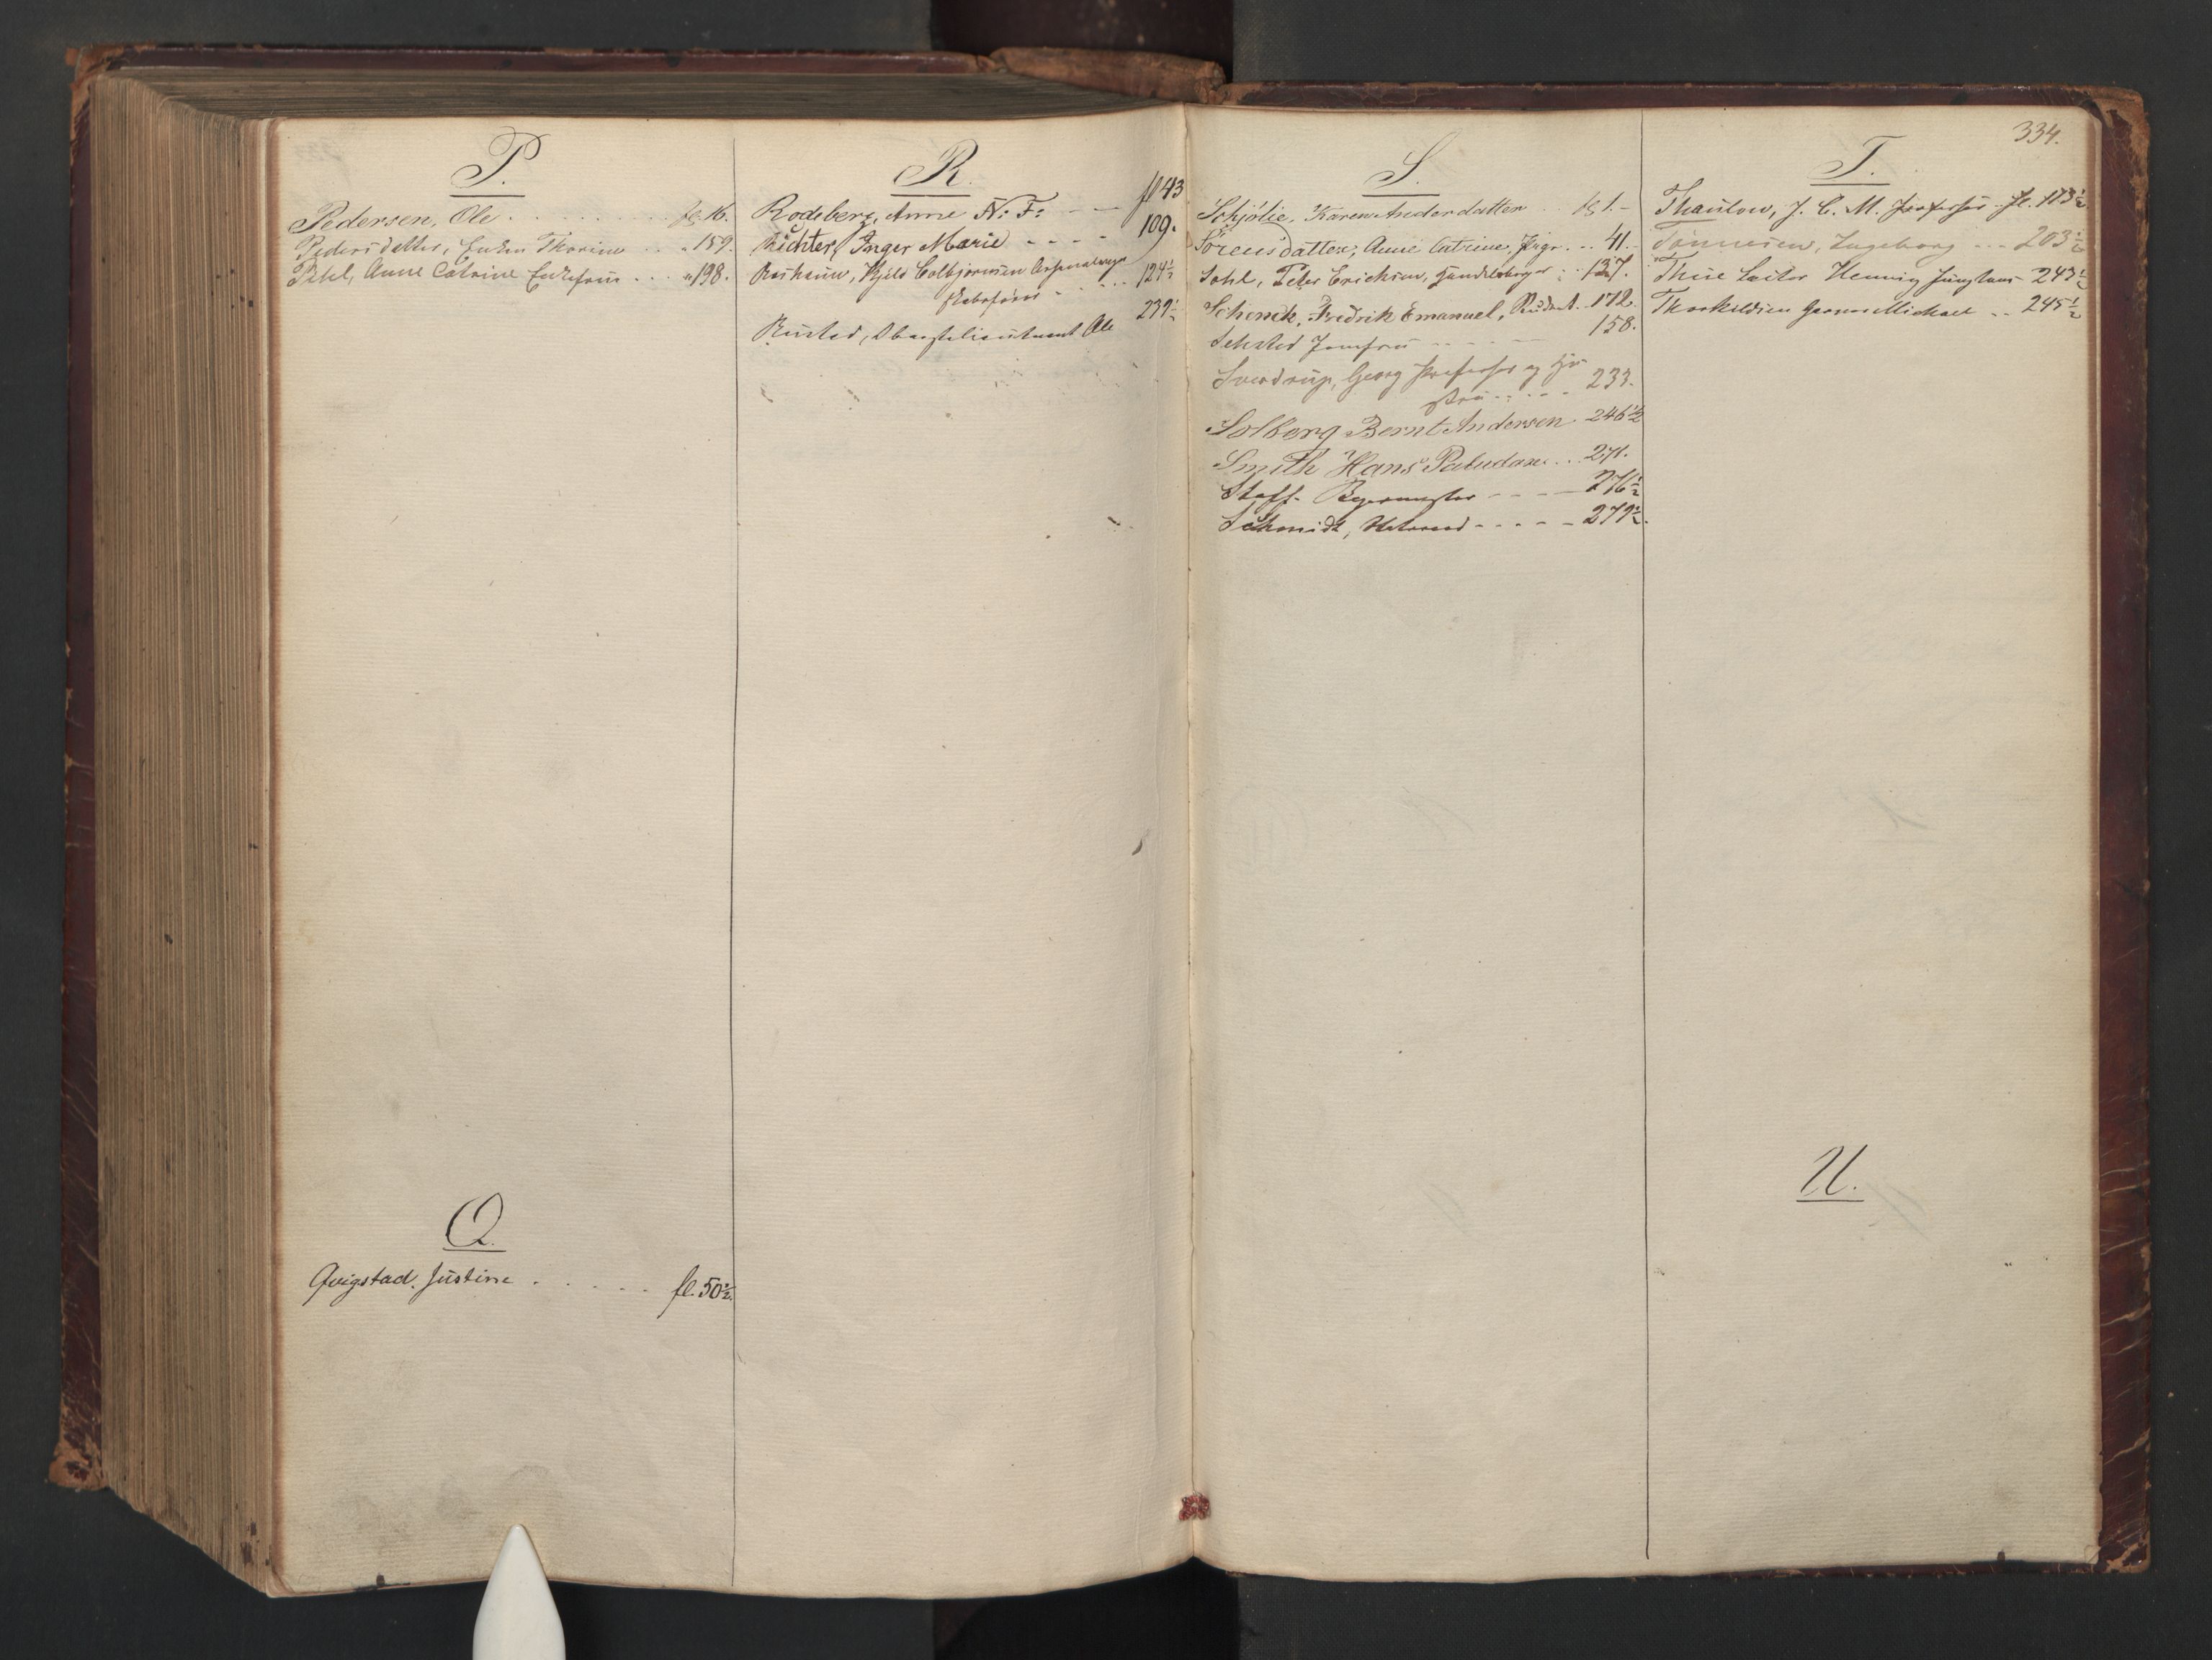 P.
Pedersen, Ole . . . . . . . fol. 16.
Pedersdatter, Enken Thorine . . „ 159.
Pihl, Anne Catrine Enkefrue . . . „ 198.
Q.
Qvigstad. Justine . . . . . fl. 50½.
R.
Rodeberg, Anne N: F: – – fl 43
Richter, Inger Marie . . . . 109.
Colbjørnsen 124½
239½
Rustad, Oberstlieutnant Ole
334.
S.
Schjølie, Karen Andersdatter . . fol. 1. –
Sørensdatter, Anne Catrine, Pige . . 41. –
Sohl, Peter Ericksen, Handelsborger . . 137.
Schenck, Fredrik Emanuel, Student . . 172.
158.
Sehsted Jomfrue – – – –
Sverdrup, Georg Professor og Hu
strue . . . . . 233.
Solberg Bernt Andersen . 246½
Smith Hans Paludan . . . 271.
Staff. – – – – 276½
Schmidt, – – – – – 279½.
T.
Thaulow, J. C. M. Professor . fl. 173½
Tønnesen, Ingeborg . . . 203½
Thue Lector Henning Junghans 243½
Thorkildsen Michael . . 245½
U.